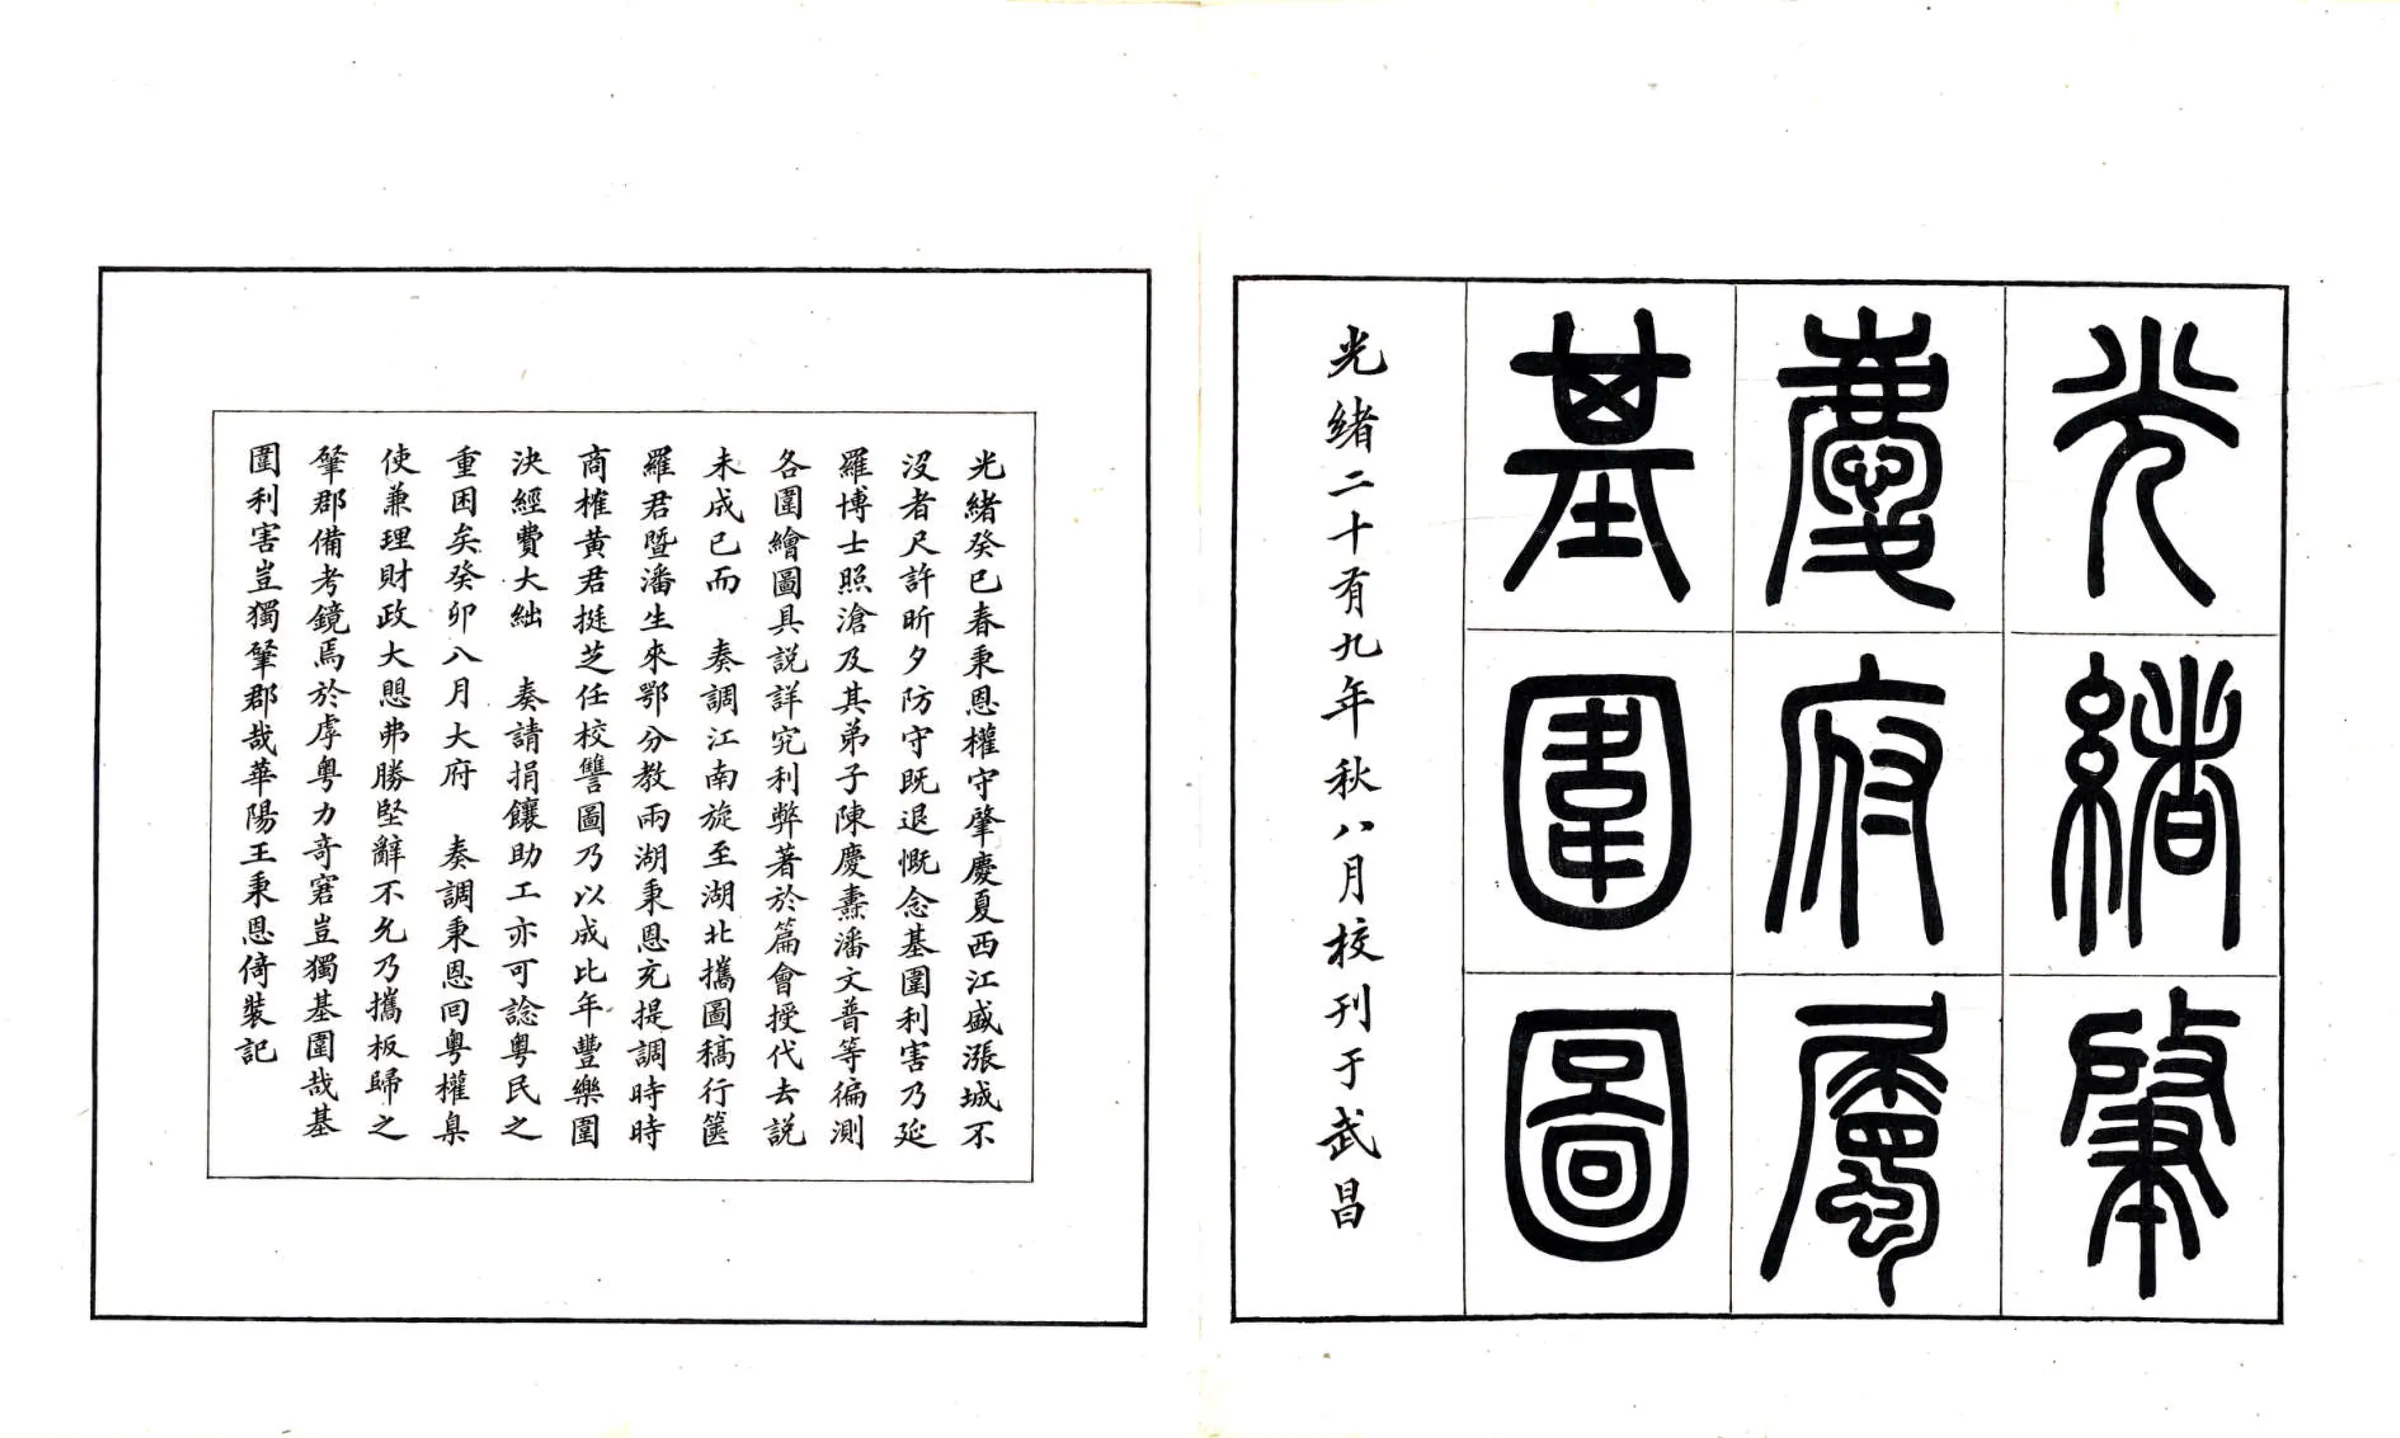 光緒肇
慶府屬
基圍圖
光緒二十有九年秋八月校刊于武昌
光緒癸巳春秉恩權守肇慶夏西江盛漲城不
沒者尺許昕夕防守既退慨念基圍利害乃延
羅博士照滄及其弟子陳慶燾潘文普等徧測
各圍繪圖具說詳究利弊著於篇會授代去說
未成已而 奏調江南旋至湖北攜圖稿行篋
羅君暨潘生來鄂分教兩湖秉恩充提調時時
商榷黃君挺芝任校讐圖乃以成比年豐樂圍
決經費大絀 奏請捐饟助工亦可諗粵民之
重困矣癸卯八月大府 奏調秉恩回粵權臬
使兼理財政大思弗勝堅辭不允乃攜板歸之
肇郡備考鏡焉於虖粵力竒窘豈獨基圍哉基
圍利害豈獨肇郡哉華陽王秉恩倚裝記